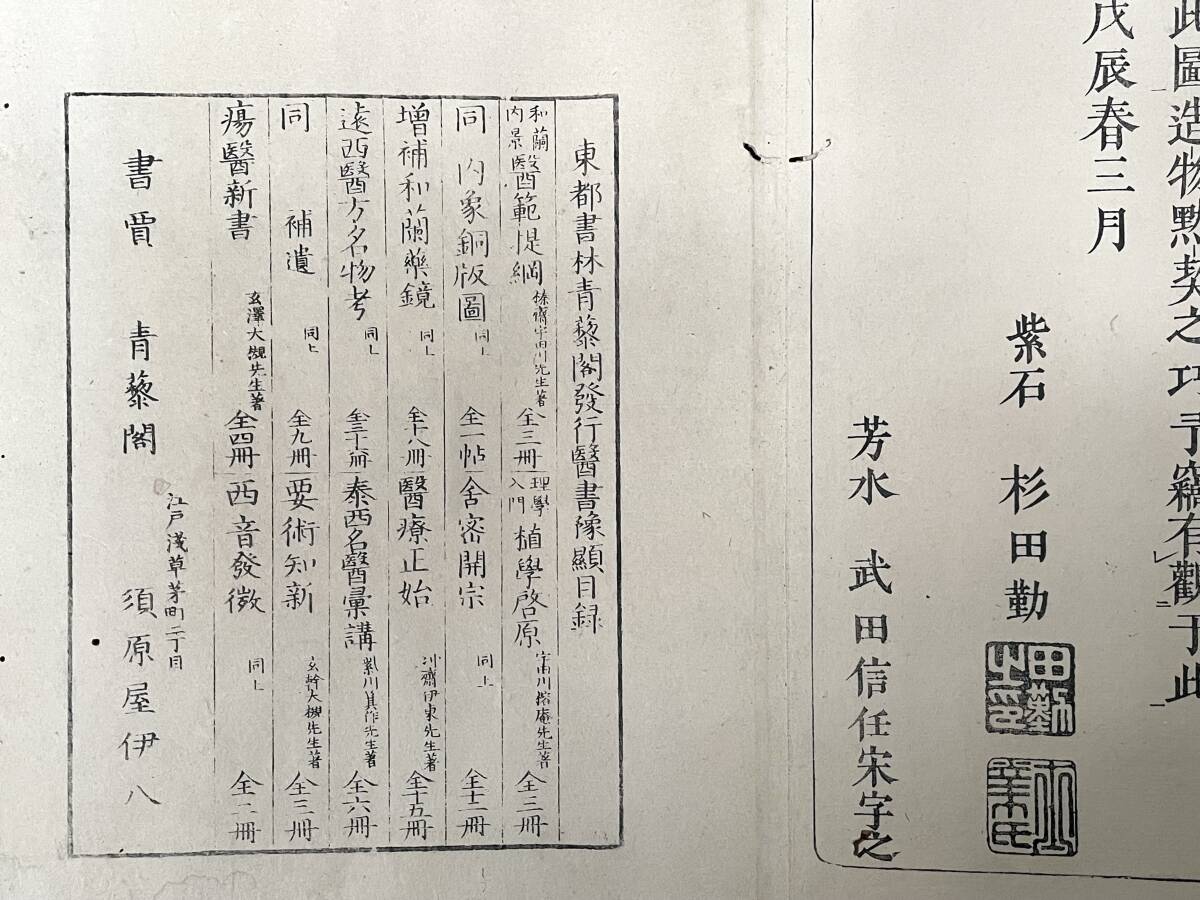 此圖造物黙契之巧予竊有觀于此
戊辰春三月
紫石 杉田勤
芳水 武田信任宋字之
東都書林青藜閣發行醫書豫顯目録
和蘭内景醫範提綱 榛齋宇田川先生著 全三冊 理學入門植學啓原 宇田川榕庵先生著 全三冊
同 内象銅版圖 同上 全一帖 舎密開宗 同上 全十二冊
增補和蘭藥鏡 同上 全十八冊 醫療正始 冲齋伊東先生著 全十五冊
遠西醫方名物考 同上 全三十六編 泰西名醫彙講 紫川箕作先生著 全六冊
同 補遺 同上 全九冊 要術知新 玄幹大槻先生著 全三冊
瘍醫新書 玄澤大槻先生著 全四冊 西音發微 同上 全二冊
書賈 青藜閣 江戸淺草茅町二丁目 須原屋伊八